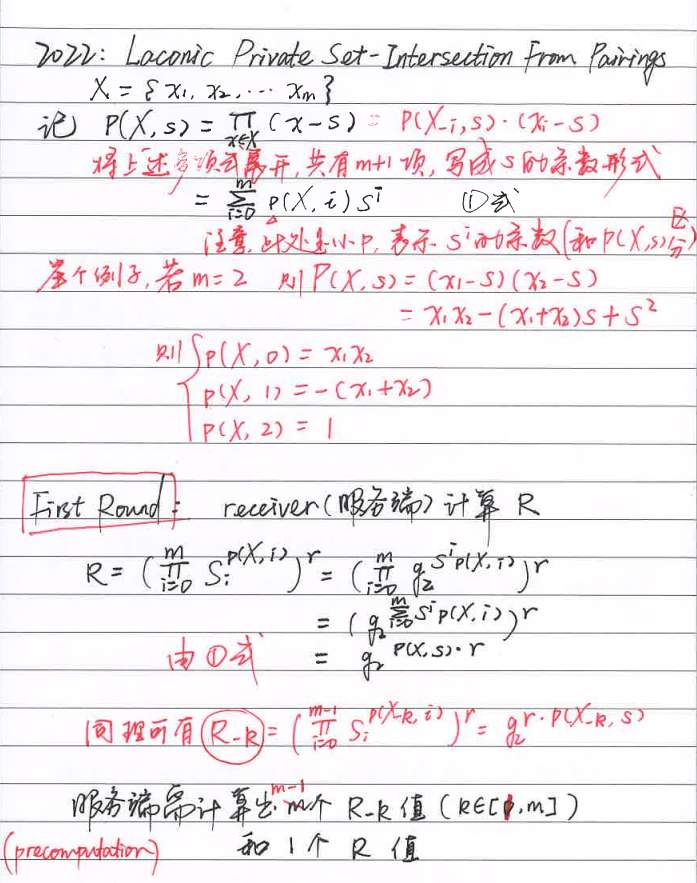 2022: Laconic Private Set-Intersection From Pairings
X = {x₁, x₂, ... xₘ}
记 P(X, s) = ∏_{x∈X} (x-s) = P(X_{-i}, s)·(xᵢ-s)
将上述多项式展开, 共有m+1项, 写成 s 的系数形式
= ∑_{i=0}^{m} p(X, i) sⁱ ①式
注意, 此处是小p, 表示 sⁱ的系数(和P(X,s)区分)
举个例子, 若 m=2 则 P(X, s) = (x₁-s)(x₂-s)
= x₁x₂-(x₁+x₂)s+s²
则 { p(X, 0) = x₁x₂
p(X, 1) = -(x₁+x₂)
p(X, 2) = 1
First Round: receiver(服务端) 计算 R
R = (∏_{i=0}^{m} Sᵢ^{p(X,i)})^r = (∏_{i=0}^{m} g₂^{sⁱp(X,i)})^r
= (g₂^{∑_{i=0}^{m} sⁱp(X,i)})^r
由①式 = g₂^{P(X,s)·r}
同理可有 R_{-k} = (∏_{i=0}^{m-1} Sᵢ^{p(X_{-k}, i)})^r = g₂^{r·P(X_{-k}, s)}
m-1
服务端需计算出 m个 R_{-k} 值 (k∈[1,m])
(precomputation) 和 1个 R 值